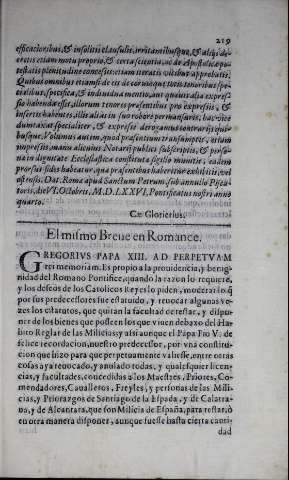 219
efficacioribus, & insolitis clausulis, irritantibusque, & alijs de-
cretis etiam motu proprio, & certa scientia, ac de Apostolicæ po-
testatis plenitudine concessis: etiam iteratis vicibus approbatis.
Quibus omnibus etiamsi de eis de eorumque totis tenoribus spe-
cialibus, specifica, & indiuidua mentio, aut quæuis alia expres-
sio habenda esset, illorum tenores præsentibus pro expressis, &
insertis habentes, illis alias in suo robore permansuris, hac vice
dumtaxat specialiter, & expresse derogamus contrarijs qui-
busque. Volumus autem, quod præsentium transumptis, etiam
impressis, manu alicuius Notarij publici subscriptis, & perso-
næ in dignitate Ecclesiastica constituta sigillo munitis, eadem
prorsus fides habeatur, quæ præsentibus haberetur exhibitis, vel
ostensis. Dat. Romæ apud Sanctum Petrum, sub annullo Pisca-
toris, die VI. Octobris, M.D.LXXVI. Pontificatus nostri anno
quarto.
Cæ. Glorierius.
El mismo Breue en Romance.
GREGORIVS PAPA XIII. AD PERPETVAM
rei memoriam. Es propio a la prouidencia, y benig-
nidad del Romano Pontifice, quando la razon lo requiere,
y los deseos de los Catolicos Reyes lo piden, moderar lo q̃
por sus predecessores fue estatuido, y reuocar algunas ve-
zes los estatutos, que quitan la facultad de testar, y dispo-
ner de los bienes que posseen los que viuen debaxo del Ha-
bito Reglar de las Milicias: y assi aunque el Papa Pio V. de
felice recordacion, nuestro predecessor, por vna constitu-
cion que hizo para que perpetuamente valiesse, entre otras
cosas aya reuocado, y anulado todas, y qualesquier licen-
cias, y facultades, concedidas a los Maestres, Priores, Co-
mendadores, Caualleros, Freyles, y personas de las Mili-
cias, y Priorazgos de Santiago de la Espada, y de Calatra-
ua, y de Alcantara, que son Milicia de España, para testar, ò
en otra manera disponer, aunque fuesse hasta cierta canti-
dad